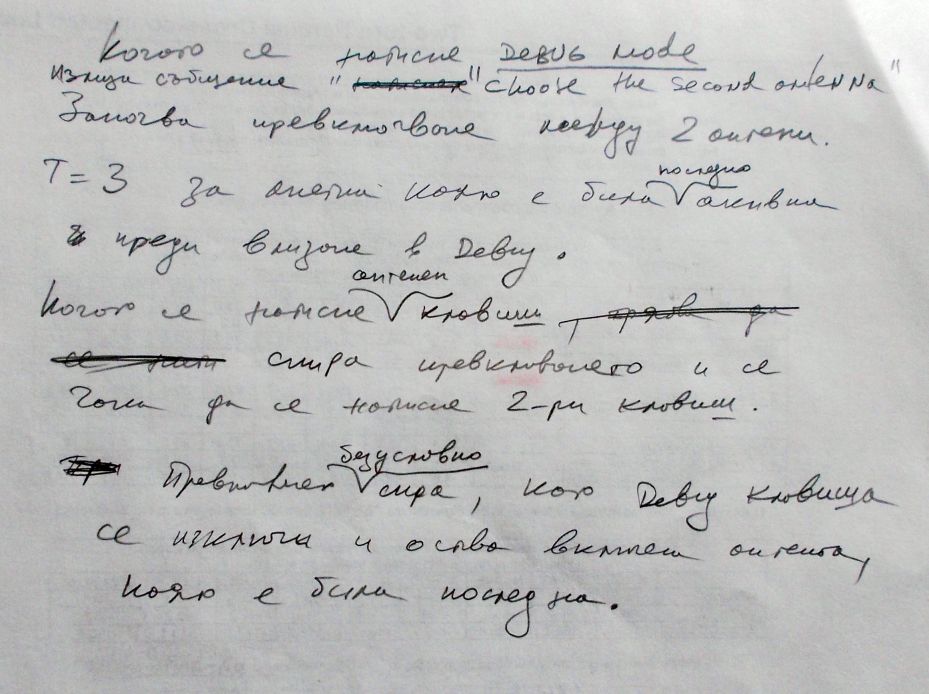 Когато се натисне DEBUG MODE
излиза съобщение "натиснат" "choose the second antenna"
Започва превключване между 2 антени.
T=3 за антена която е била последно активна
преди влизане в Debug.
Когато се натисне антенен клавиш, трябва да
се нати спира превключването и се
чака да се натисне 2-ри клавиш.
безусловно спира, като Debug клавиша
се изключи и остава включена антената,
която е била последна.